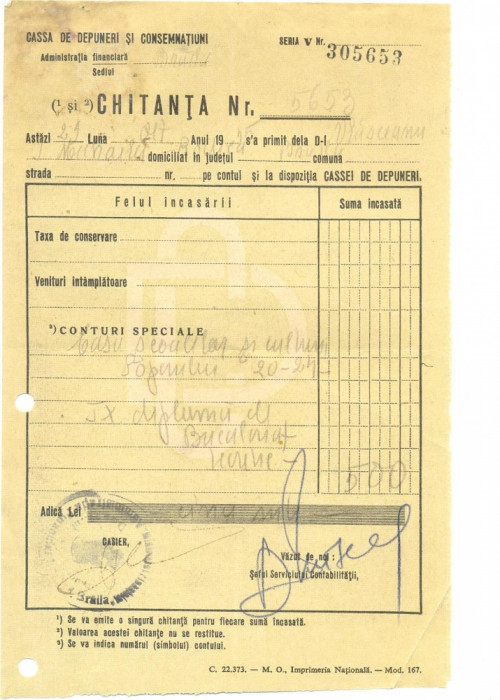 CASSA DE DEPUNERI ȘI CONSEMNAȚIUNI
SERIA V Nr. 305653
Administrația financiară
Sediul
(¹ și ²) CHITANȚA Nr. 5653
Astăzi 29 Luna Anul 19 s'a primit dela D-l
domiciliat în județul comuna
strada nr. pe contul și la dispoziția CASSEI DE DEPUNERI.
Felul încasării Suma încasată
Taxa de conservare
Venituri întâmplătoare
³) CONTURI SPECIALE
Casa Școalelor și culturii
Poporului 20-245
TX diplomă de
Bacalaureat
500
Adică Lei
CASIER,
Văzut de noi:
Șeful Serviciului Contabilității,
Brăila
¹) Se va emite o singură chitanță pentru fiecare sumă încasată.
²) Valoarea acestei chitanțe nu se restitue.
³) Se va indica numărul (simbolul) contului.
C. 22.373. — M. O., Imprimeria Națională. — Mod. 167.